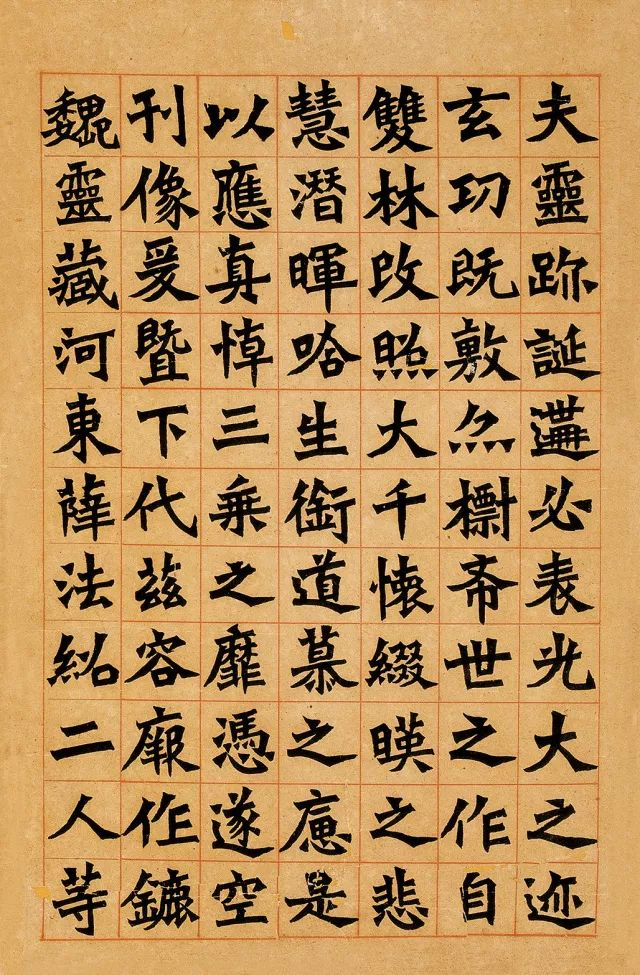 夫靈跡誕遘必表光大之迹
玄功既敷亦標希世之作自
雙林改照大千懷綴暎之悲
慧潛暉唅生銜道慕之是
以應真悼三乘之靡憑遂空
刊像爰暨下代茲容作鏕
魏靈藏河東薛法紹二人等